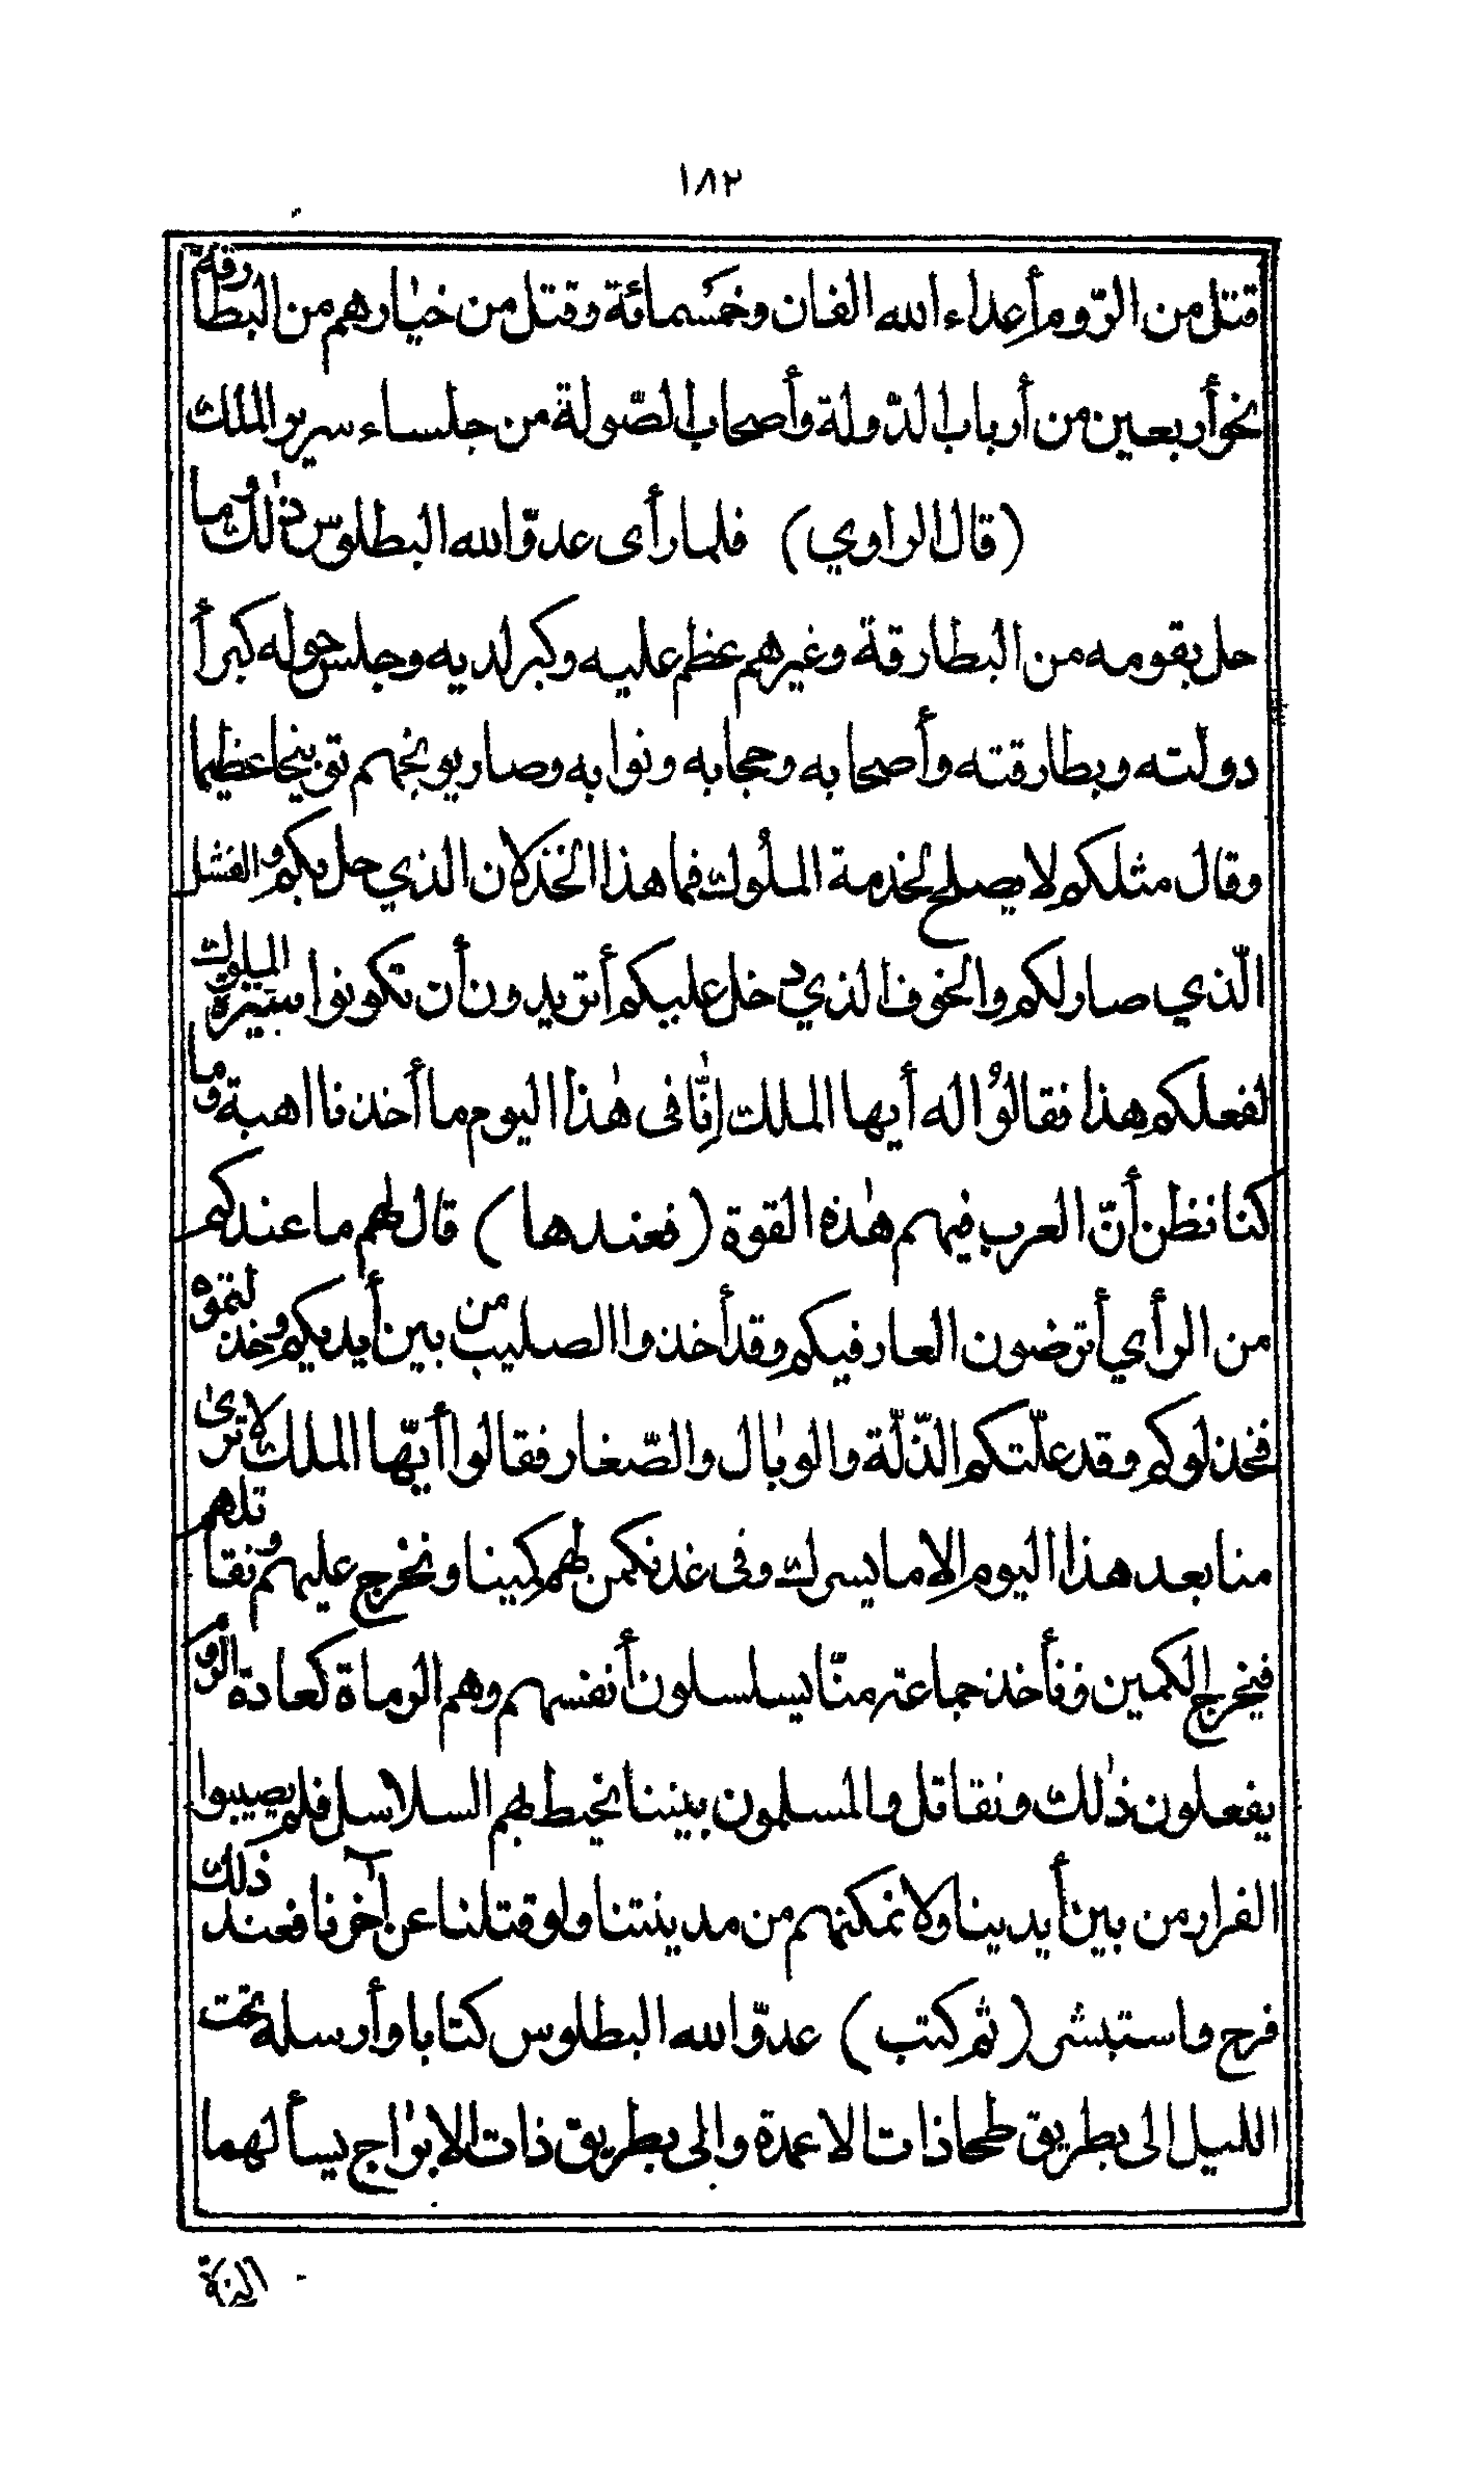 ١٨٢
قتل من الرّوم أعداء الله الفان وخمسمائة وقتل من خيارهم من البطارقة
نحو أربعين من أرباب الدّولة وأصحاب الصّولة من جلساء سرير الملك
(قال الراوي) فلما رأى عدوّ الله البطلوس ذلك وما
حل بقومه من البطارقة وغيرهم عظم عليه وكبر لديه وجلس حوله كبرأ
دولته وبطارقته وأصحابه وحجابه ونوابه وصار يوبخهم توبيخا عظيما
وقال مثلكم لا يصلح لخدمة الملوك فما هذا الخذلان الذي حل بكم والفشل
الّذي صار لكم والخوف الذي دخل عليكم أتريدون أن تكونوا الملوك
لفعلكم هذا فقالوُا له أيها الملك إنّا فى هٰذا اليوم ما أخذنا اهبة وما
كنا نظن أنّ العرب فيهم هٰذه القوة (فعندها) قال لهم ما عندكم
من الرأي أترضون العار فيكم وقد أخذوا الصليب من بين أيديكم وخذلتموه
فخذلوكم وقد علّتكم الذّلّة والوبال والصّغار فقالوا أيّها الملك لا ترىٰ
منا بعد هذا اليوم إلا ما يسرك وفى غد نكمن لهم كمينا ونخرج عليهم ونقاتلهم
فيخرج الكمين ونأخذ جماعة منّا يسلسلون أنفسهم وهم الرماة كعادة الروم
يفعلون ذٰلك ونقاتل والمسلمون بيننا نحيط بهم السلاسل فلم يصيبوا
الفرار من بين أيدينا ولا نمكنهم من مدينتنا ولو قتلنا عن آخرنا فعند ذلك
فرح واستبشر (ثم كتب) عدوّ الله البطلوس كتابا وأرسله تحت
الليل الى بطريق طحا ذات الاعمدة والى بطريق ذات الابواج يسألهما